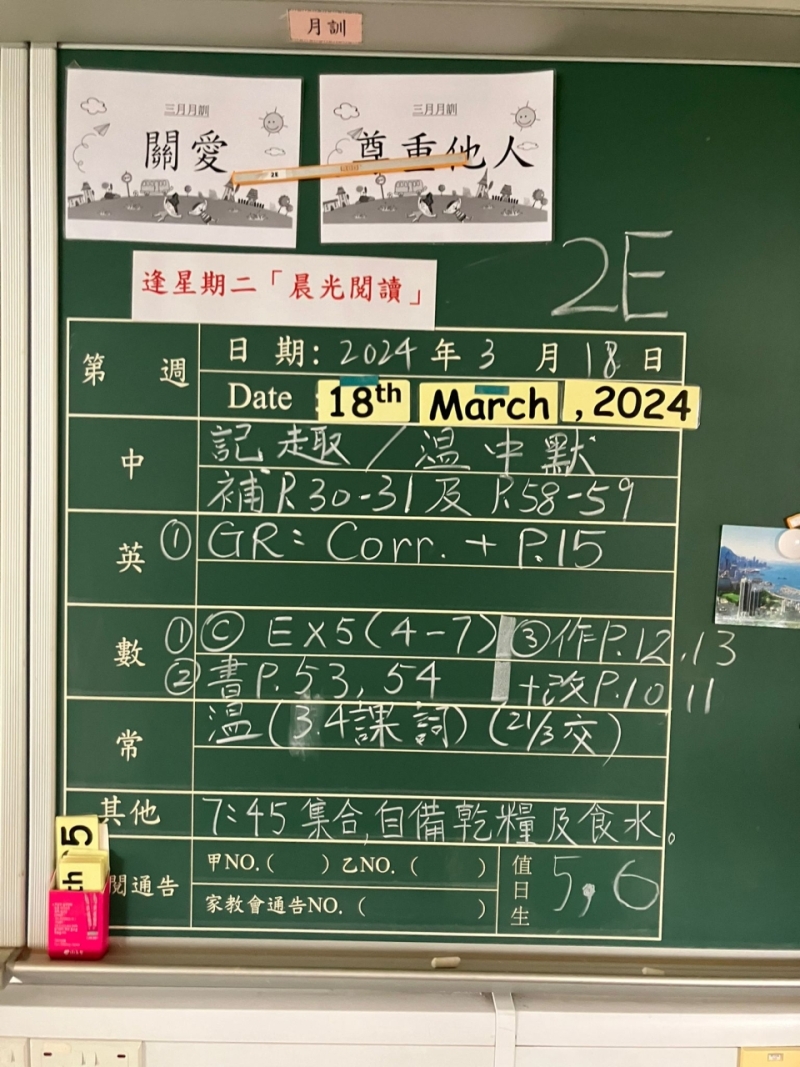 月訓
三月月訓
關愛
三月月訓
尊重他人
2E
逢星期二「晨光閱讀」
第 週
日 期: 2024 年 3 月 18 日
Date : 18th March , 2024
中
記趣 / 溫中默
補P.30-31及P.58-59
英 ① GR: Corr. + P.15
數 ① Ⓒ EX5(4-7) ③作P.12,13
② 書P.53, 54 +改P.10 11
常 溫(3.4課詞) (21/3交)
其他 7:45集合,自備乾糧及食水。
閱通告
甲NO.( ) 乙NO.( )
家教會通告NO. ( )
值日生 5, 6